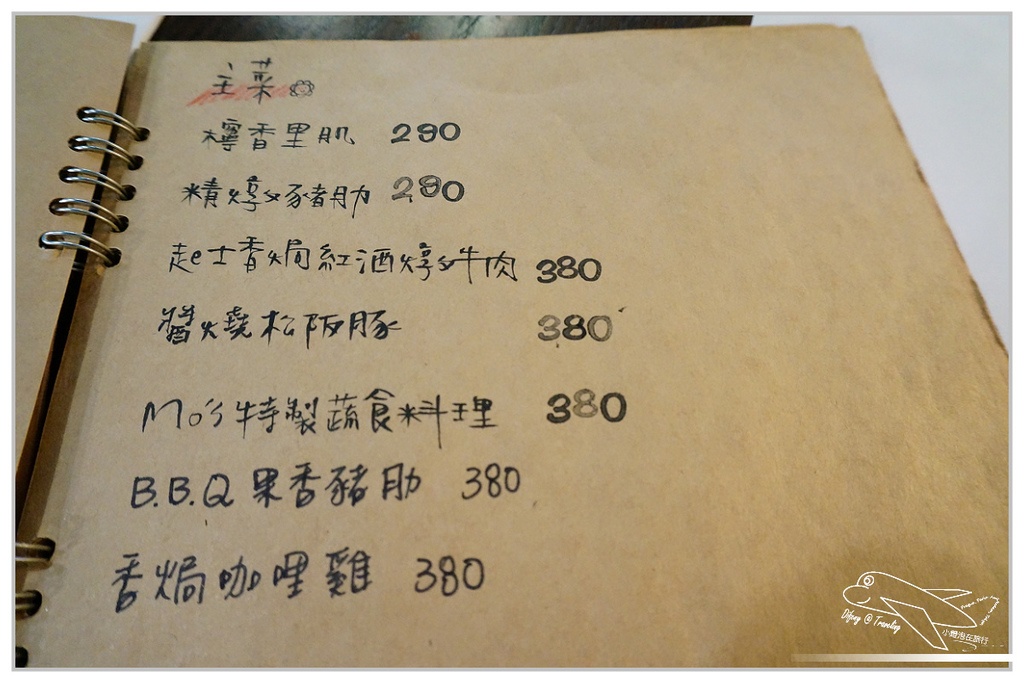 主菜
檸香里肌 290
精燉豬肋 290
起士香焗紅酒燉牛肉 380
醬燒松阪豚 380
Mo's特製蔬食料理 380
B.B.Q 果香豬肋 380
香焗咖哩雞 380
Difeny @ Traveling
小環泡在旅行